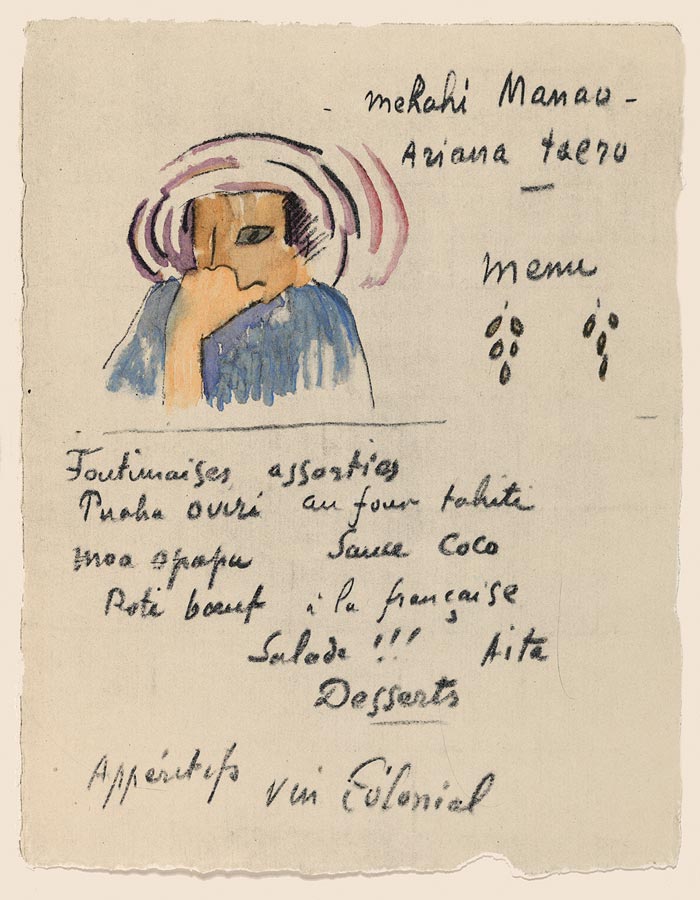 - meRahi Manao -
Ariana taero
menu
Foutimaises assorties
Puaha ouvri au four tahiti
moa opapu Sauce Coco
Roti bœuf à la française
Salade !!! Aita
Desserts
Appéritifs vin Colonial